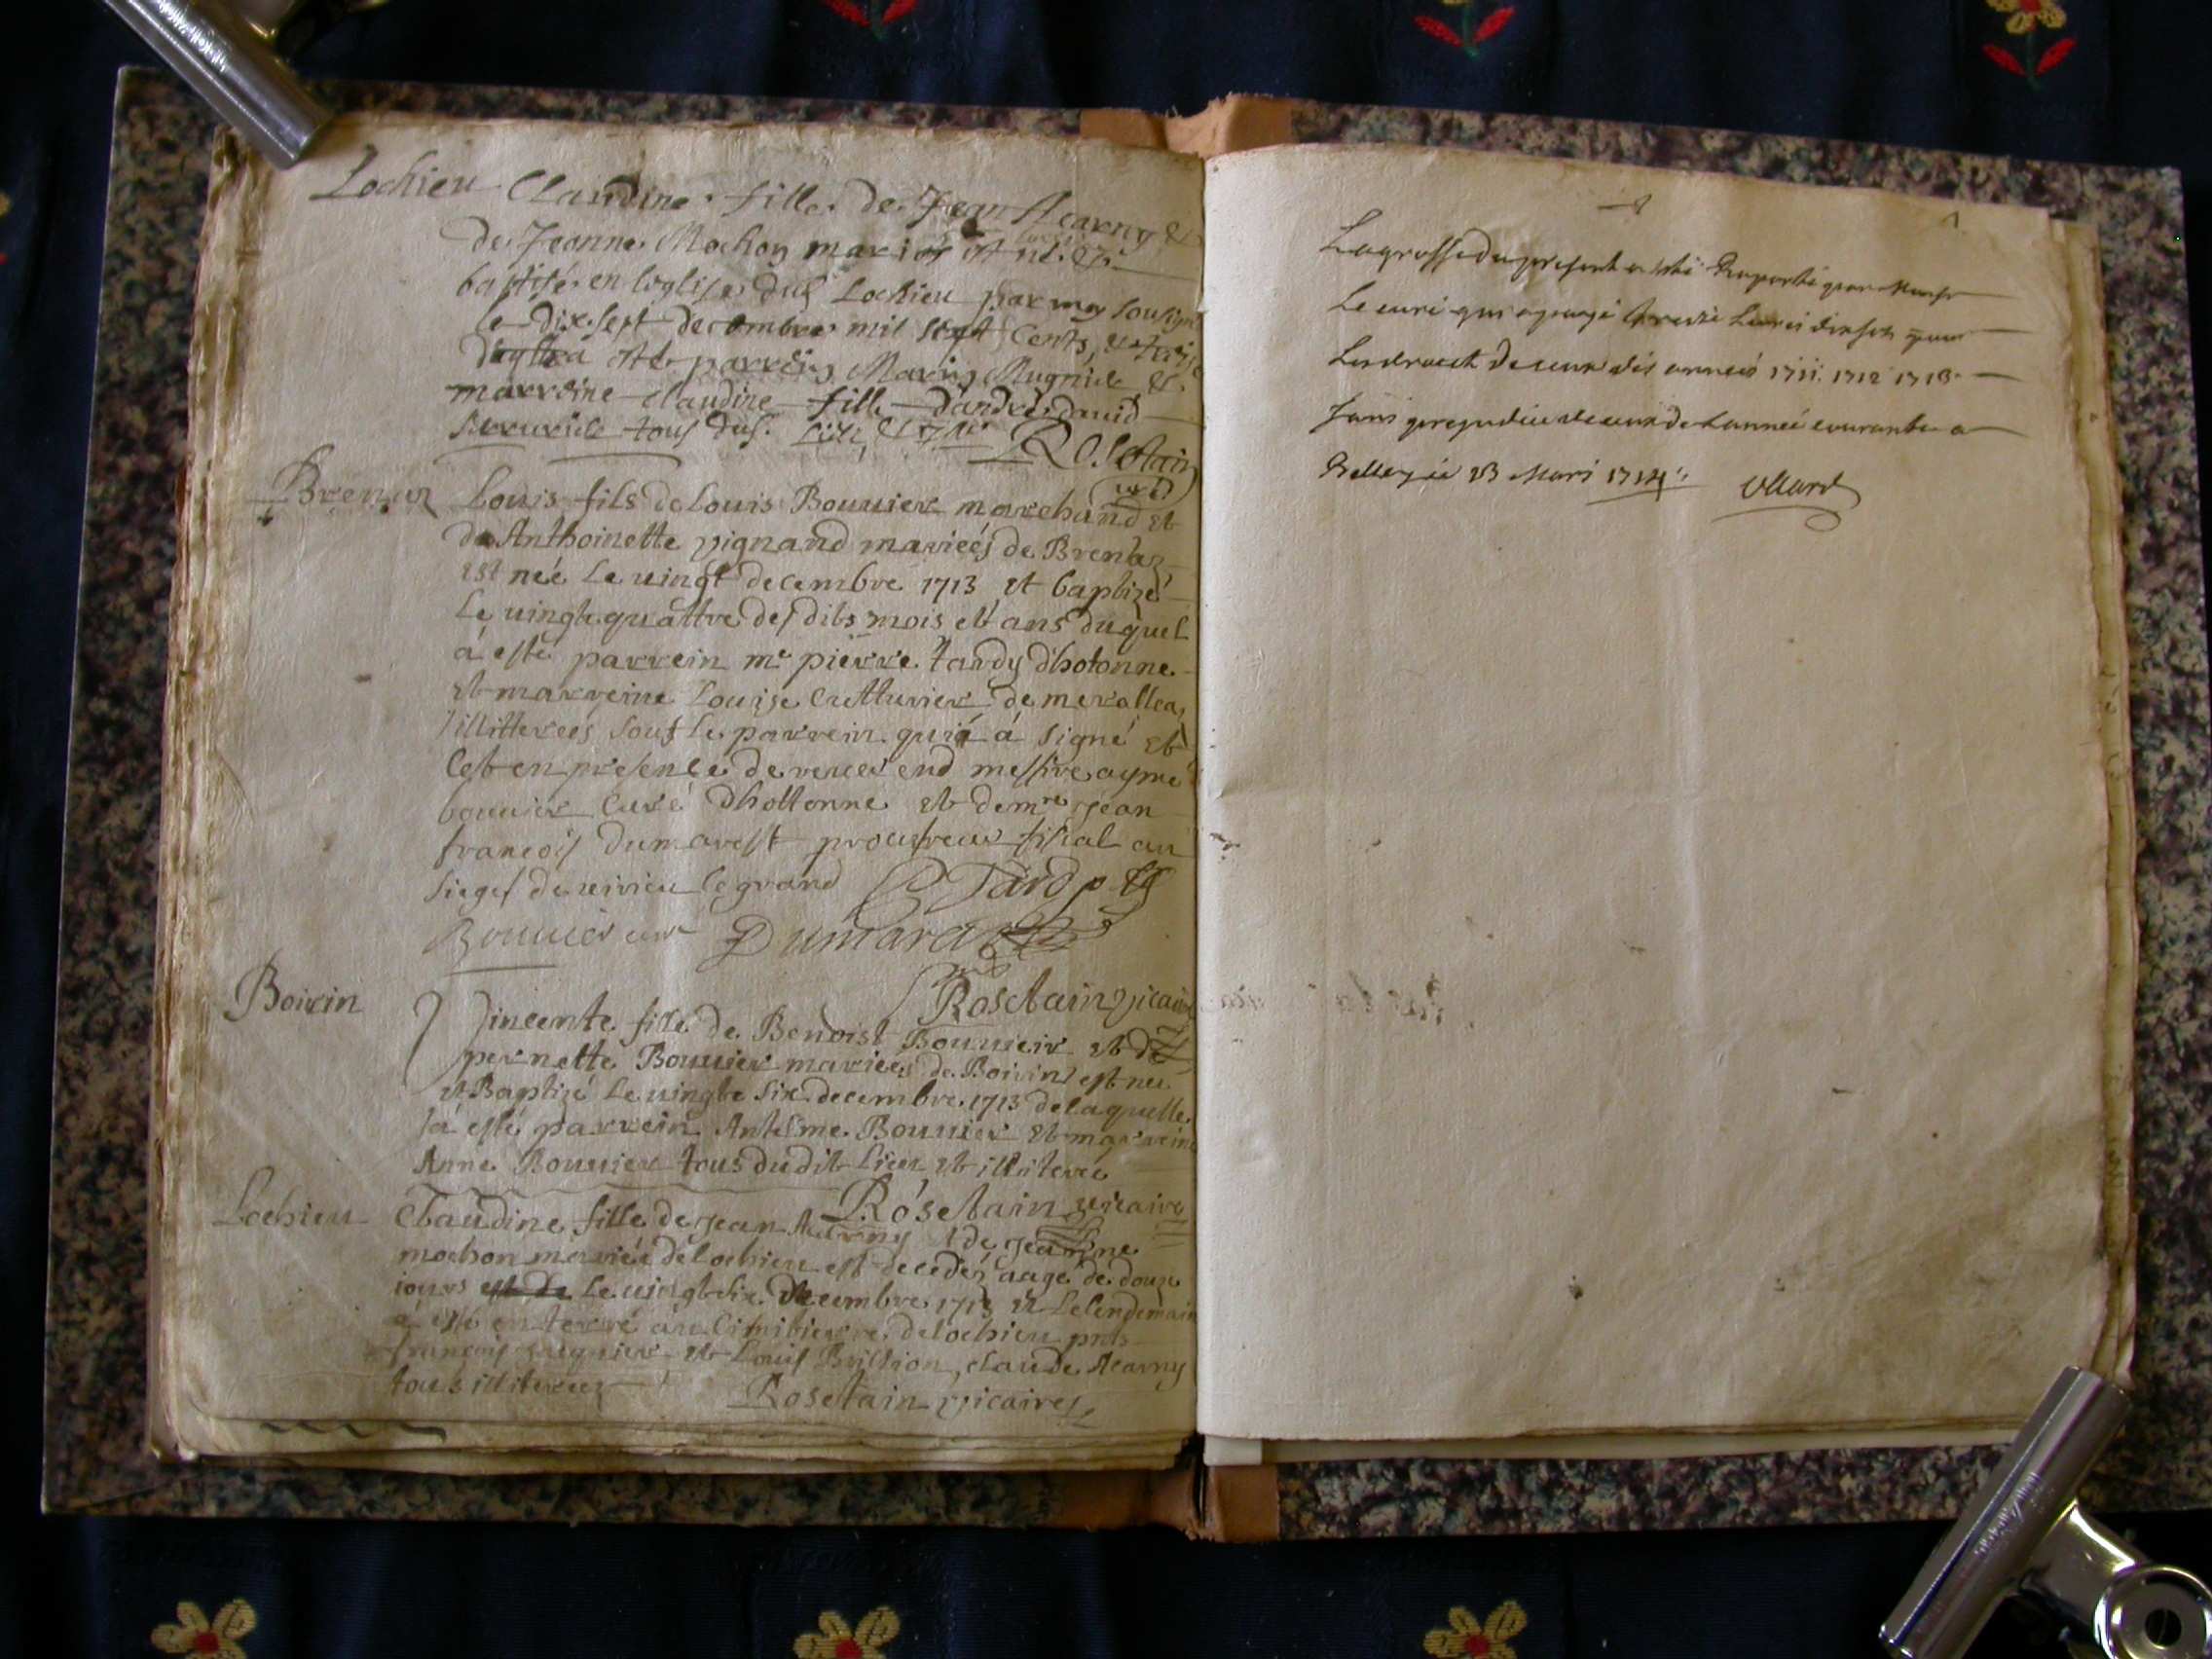 Lochieu Claudine fille de Jean Acarny &
de Jeanne Mochon mariés est née &
baptisé en léglise dud Lochieu par moy sousigné
le dix sept decembre mil sept cents
a esté parrein Mugnier &
marreine claudine fille d'andré
tous dud. Lieu Rosetain
Brenaz Louis fils de Louis Bouuier marchand et
de Anthoinette pignand marieés de Brenaz
est neé Le uingt decembre 1713 et baptizé
Le uingt quattre des dits mois et ans duquel
à esté parrein me pierre tardy d'hotonne
et marreine Louise Cutturier de merallea
illitterees sauf Le parrein qui à signé et
Cest en presence de reuerend messire ayme
bouuier Curé dhottonne et de mre jean
francois dumarest procureur fiscal au
sieges de uirieu le grand Tardy
Bouuier curé Dumarest
Rosetain vicaire
Boirin Vincente fille de Benoist Bouuier et de
pernette Bouuier mariees de Boirin est neé
et Baptizé Le uingte six decembre 1713 de laquelle
à esté parrein Antelme Bouuier et marreine
Anne Bouuier tous du dit Lieu et illiteres
Rosetain vicaire
Lochieu Claudine fille de jean Acarny & de jeanne
mochon marieé de lochieu est decedeé aageé de douze
iours est de Le uingt six decembre 1713 et Le lendemain
à esté enterré au Cimitierre de lochieu pnts
francois mugnier et Louis Brillion, claude Acarny
tous illiterees Rosetain vicaires
1
La grosse du present a esté Raporté par Messr
Le curé qui a payé livres dix sols pour
Les droits de ceux des anneés 1711. 1712 1713
sans prejudice de ceux de Lanneé courante a
Belley ce 23 Mars 1714